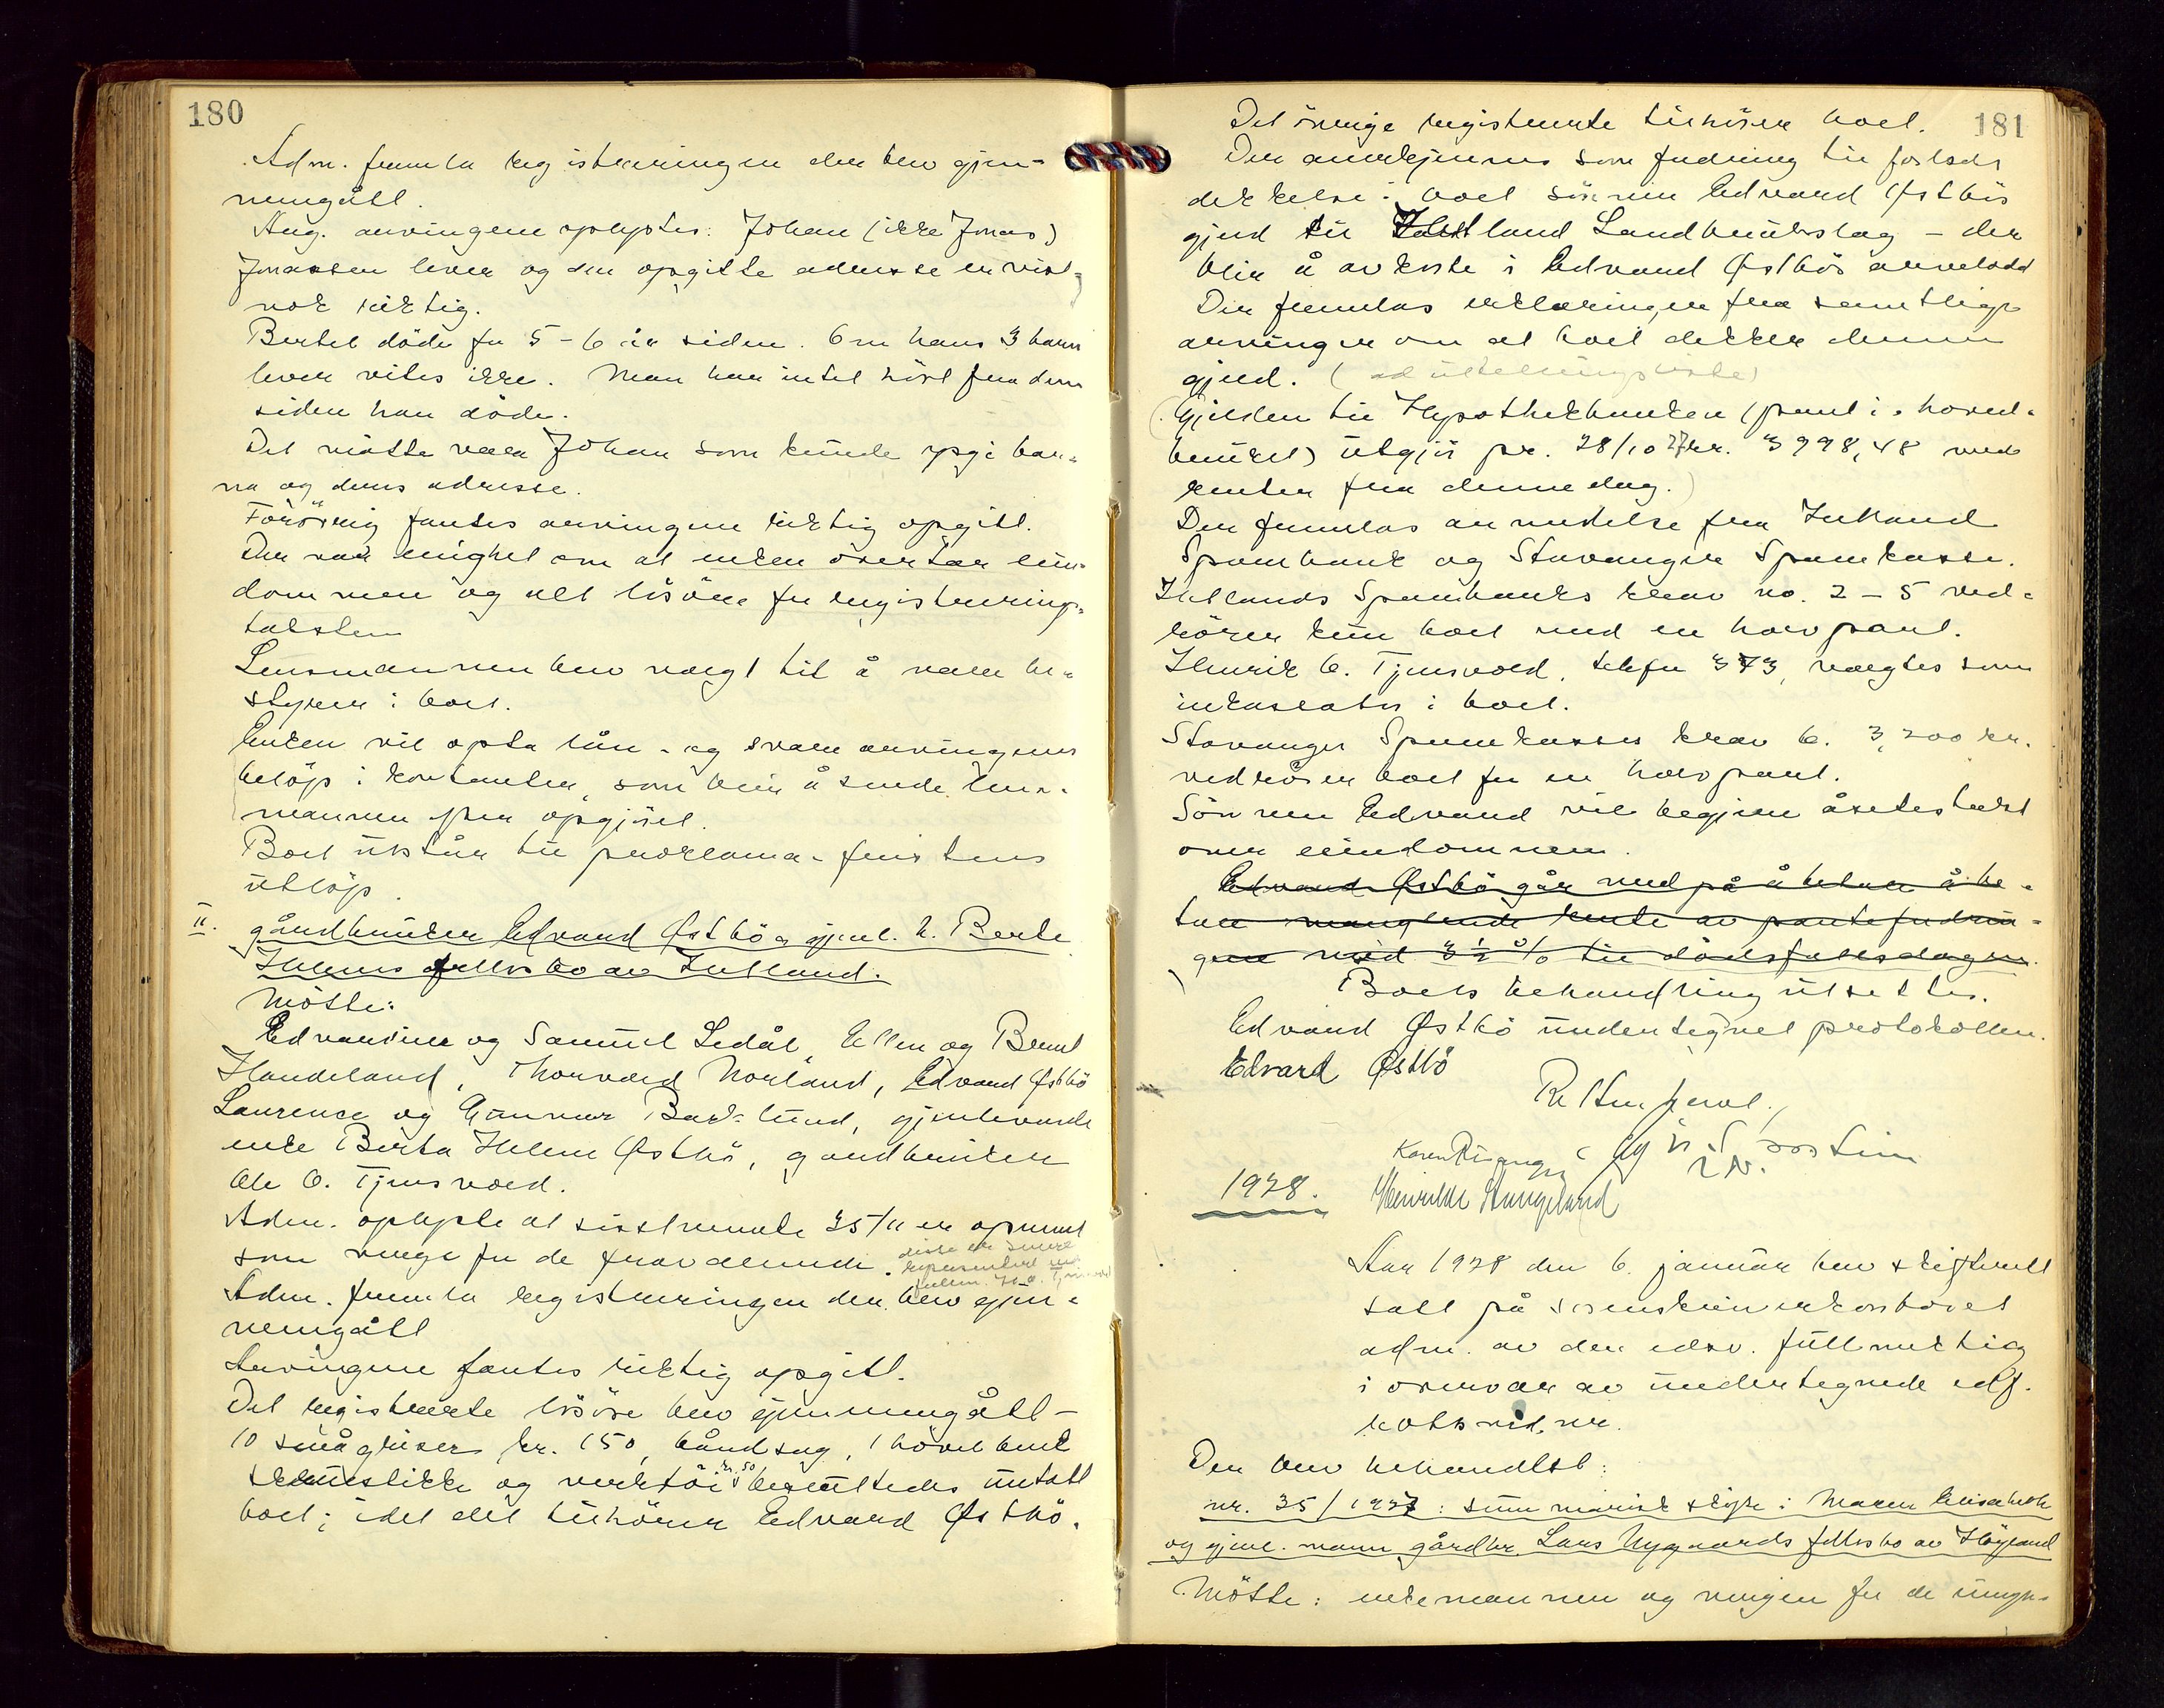 180
Adm. fremla registreringen der blev gjen-
nemgått.
Ang. arvingene oplystes: Johan (ikke Jonas)
Jonassen lever og den opgitte adresse er vist-
nok riktig.
Bertel döde for 5-6 år siden. Om hans 3 barn
lever vites ikke. Man har intet hört fra dem
siden han döde.
Det måtte være Johan som kunde opgi bar-
na og deres adresse.
Forövrig fantes arvingene riktig opgitt.
Der var enighet om at enken overtar eien-
dommen og alt lösöre for registrerings-
taksten
Lensmannen blev valgt til å være be-
styrer i boet.
Enken vil opta lån - og svare arvingenes
belöp i kontanter, som blir å sende lens-
mannen for opgjöret.
Boet utstår til proklama-fristens
utlöp.
II. gårdbruker Edvard Østbö og gjenl. h. Berte
Helenes fellesbo av Jutland.
Mötte:
Edvardine og Samuel Ledål, Ellen og Bernt
Handeland, Thorvald Norland, Edvard Østbö
Laurense og Gunnar Bark-lund, gjenlevende
enke Berta Helene Østbö, gårdbruker
Ole O. Tjensvold.
Adm. oplyste at sistnevnte 25/11 er opnevnt
som verge for de fraværende. disse er senere
representert ved
Adm. fremla registreringen der blev gjen-
nemgått
Arvingene fantes riktig opgitt.
Det registrerte lösöre blev gjennemgått -
10 smågriser kr. 150, båndsag, 1 hövelbenk
skruestikke og verktöi kr. 50 besluttedes untatt
boet; idet det tilhörer Edvard Østbö.
181
Det övrige registrerte tilhörer boet.
Der anerkjennes som fordring til forlods
dekkelse i boet sönnen Edvard Østbös
gjeld til land Landbrukslag - der
blir å avkorte i Edvard Østbös arvelodd
Der fremlas erklæringer fra samtlige
arvinger om at boet dekker denne
gjeld. (
(Gjelden til Hypothekbanken (pant i hoved-
bruket) utgjör pr. 28/10 27 kr. 3998,48 med
renter fra denne dag.)
Der fremlas anmeldelse fra Jutland
Sparebank og Stavanger Sparekasse.
Jutlands Sparebanks krav no. 2 - 5 ved-
rörer kun boet med en halvpart.
Henrik O. Tjensvold, telefon 373, valgtes som
inkassator i boet.
Stavanger Sparekasses krav 6. 3,200 kr.
vedrörer boet for en halvpart.
Sönnen Edvard vil begjære åsetestakst
over eiendommen.
Edvard Østbö går med på å betale å be-
tale manglende rente av pantefordrin-
gene med 3½ % til dödsfallsdagen.
Boets behandling utsettes.
Edvard Østbö undertegnet protokollen.
Edvard Østbö
Retten hevet.
Karen Ringen
1928. Stangeland
Aar 1928 den 6. januar blev skifterett
satt på sorenskriverkontoret
adm. av den edsv. fullmektig
i overvær av undertegnede edf.
rettsvidner.
Der blev behandlet:
nr. 35/1927: summarisk skifte i Maren Elisabeth
og gjenl. mann gårdbr. Lars Nygaards fellesbo av Höyland
Mötte: enkemannen og vergen for de umyn-